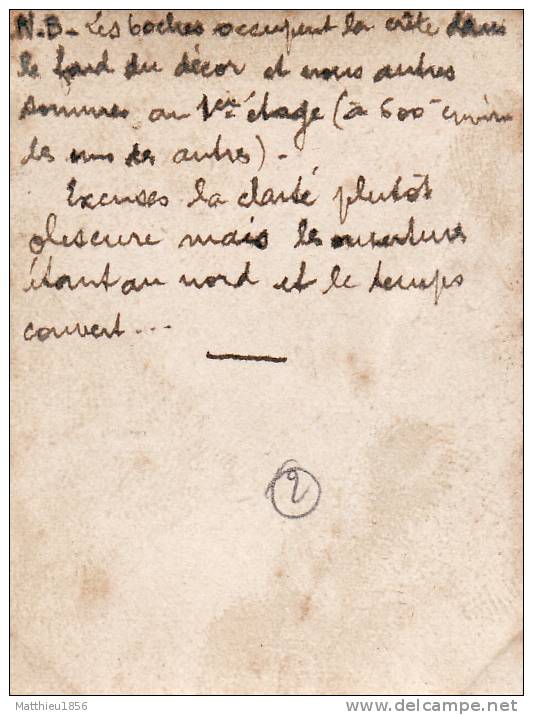 N.B- Les boches occupent la crête dans
le fond du décor et nous autres
sommes au 1er étage (à 600m environ
les uns des autres) -
Excuses la clarté plutôt
obscure mais les ouvertures
étant au nord et le temps
couvert...
2
Matthieu1856
delcampe.net